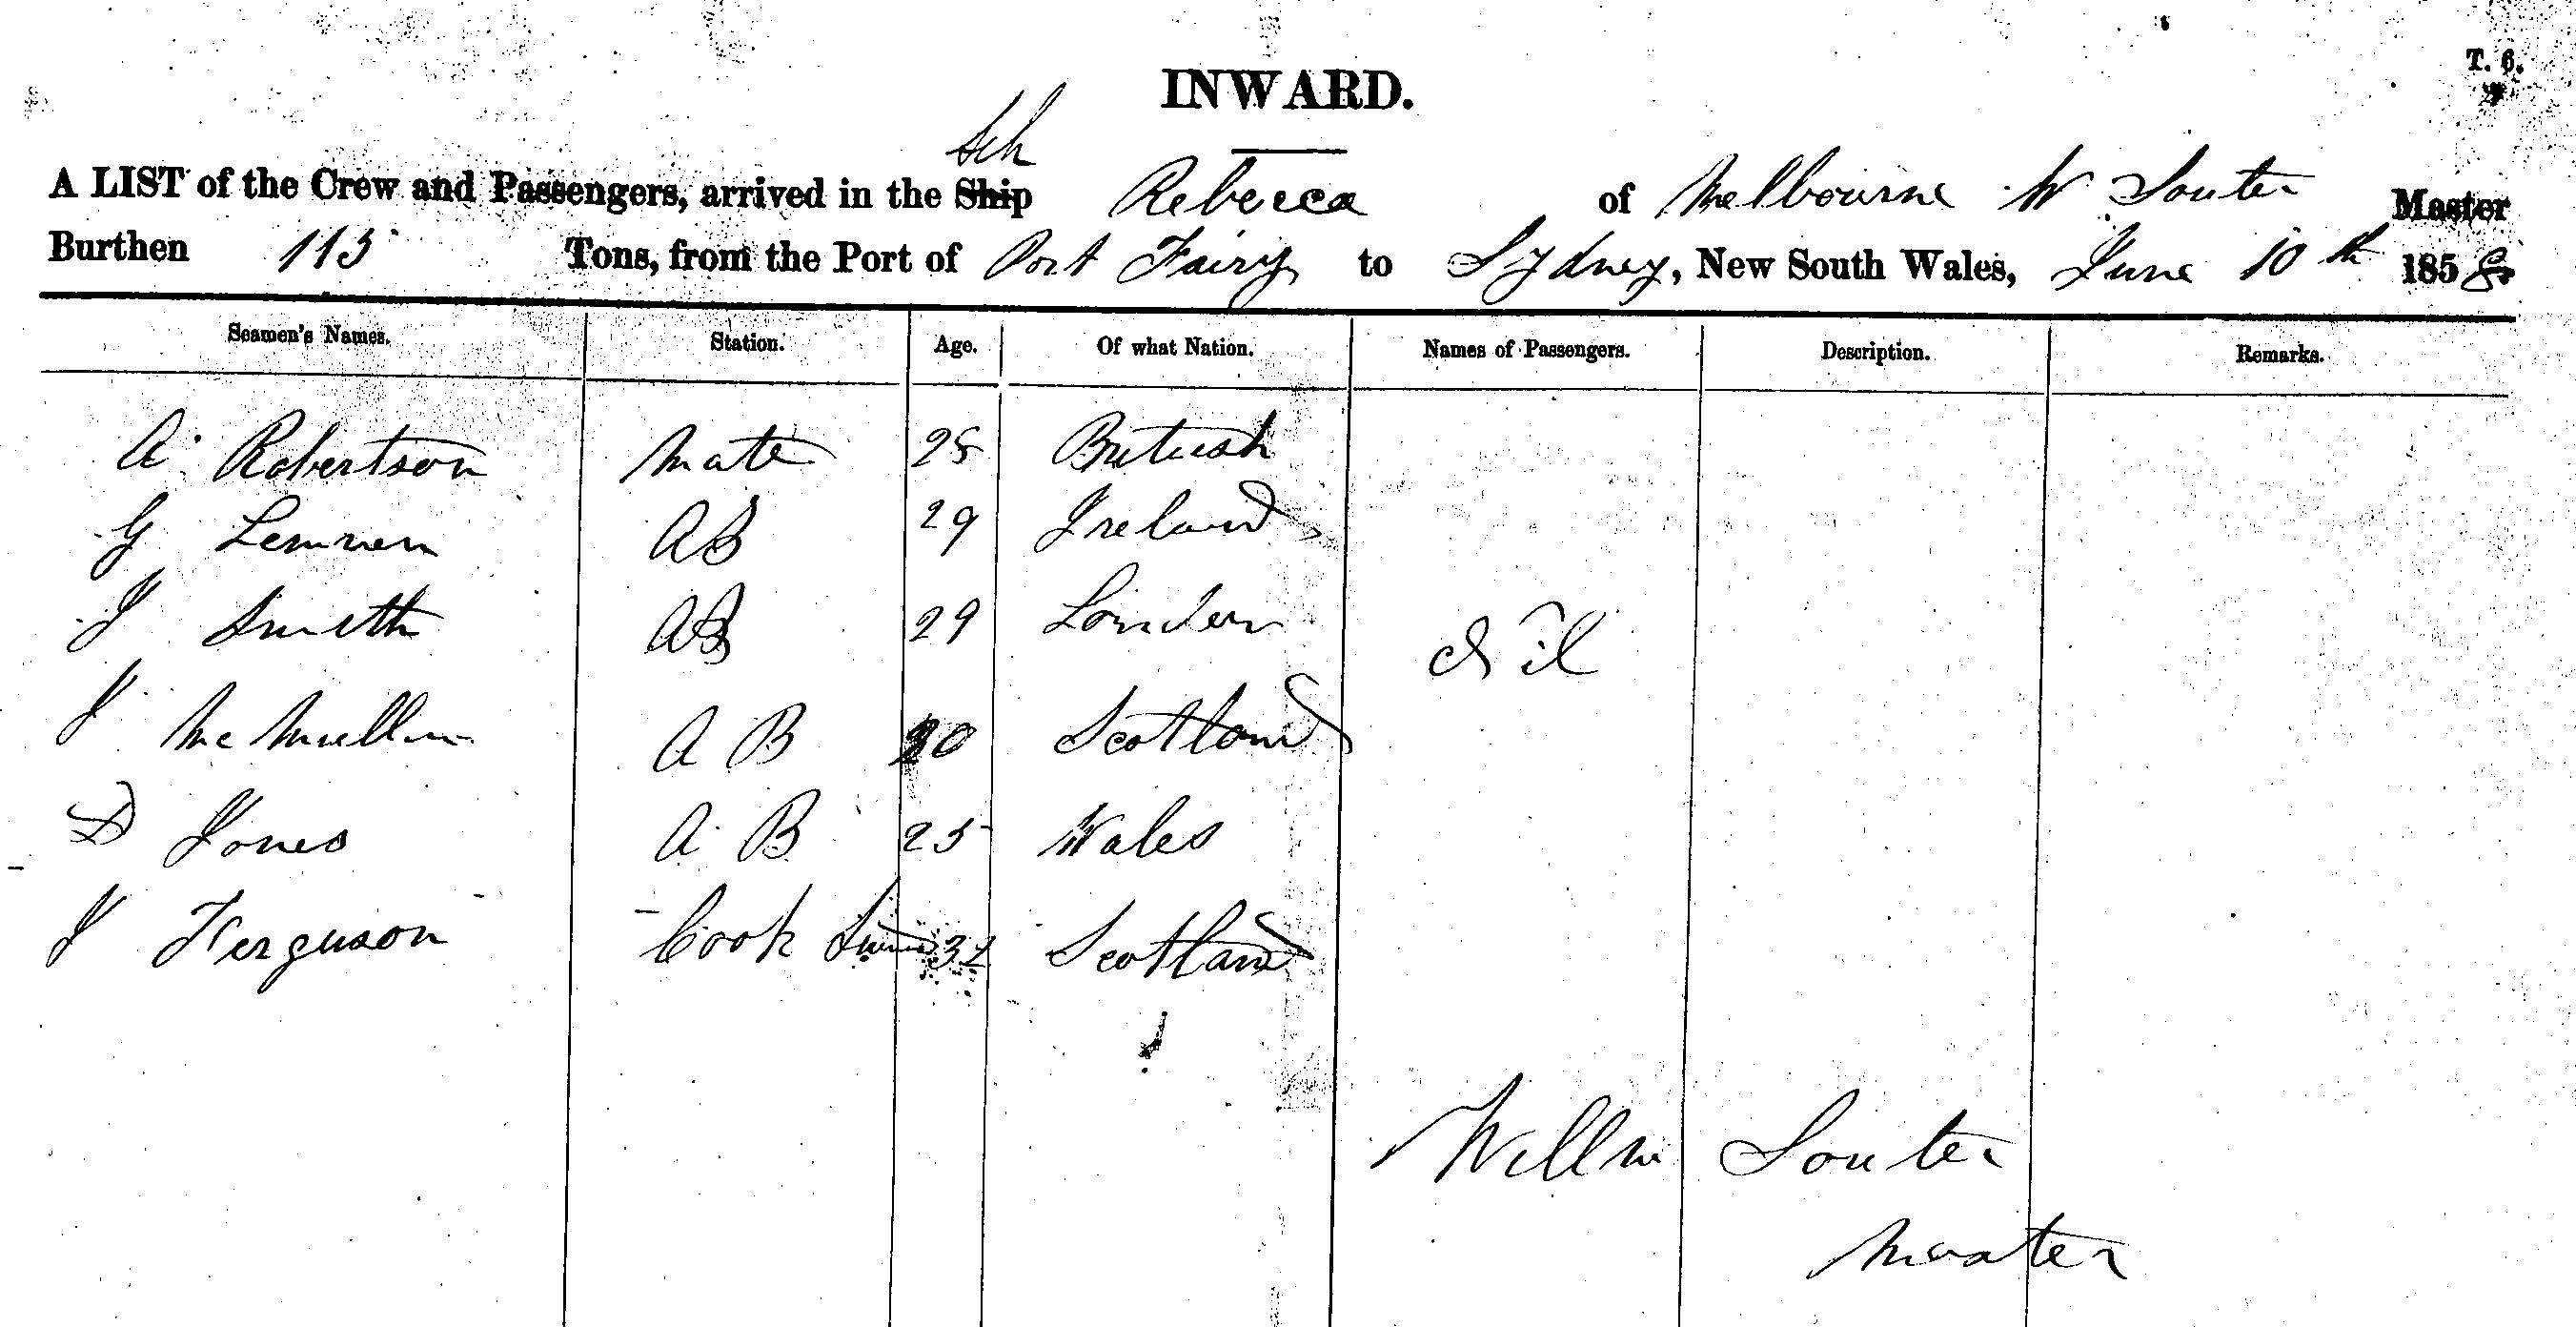 T. 6.
INWARD.
Sch
A LIST of the Crew and Passengers, arrived in the Ship Rebecca of Melbourne W Souter Master
Burthen 113 Tons, from the Port of Port Fairy to Sydney, New South Wales, June 10th 1858.
Seamen's Names. Station. Age. Of what Nation. Names of Passengers. Description. Remarks.
A Robertson Mate 28 British
G Lemnen AB 29 Ireland
J Smith AB 29 London
Nil
J McMullen A B 20 Scotland
D Jones A B 25 Wales
J Ferguson Cook 32 Scotland
Willm Souter
Master